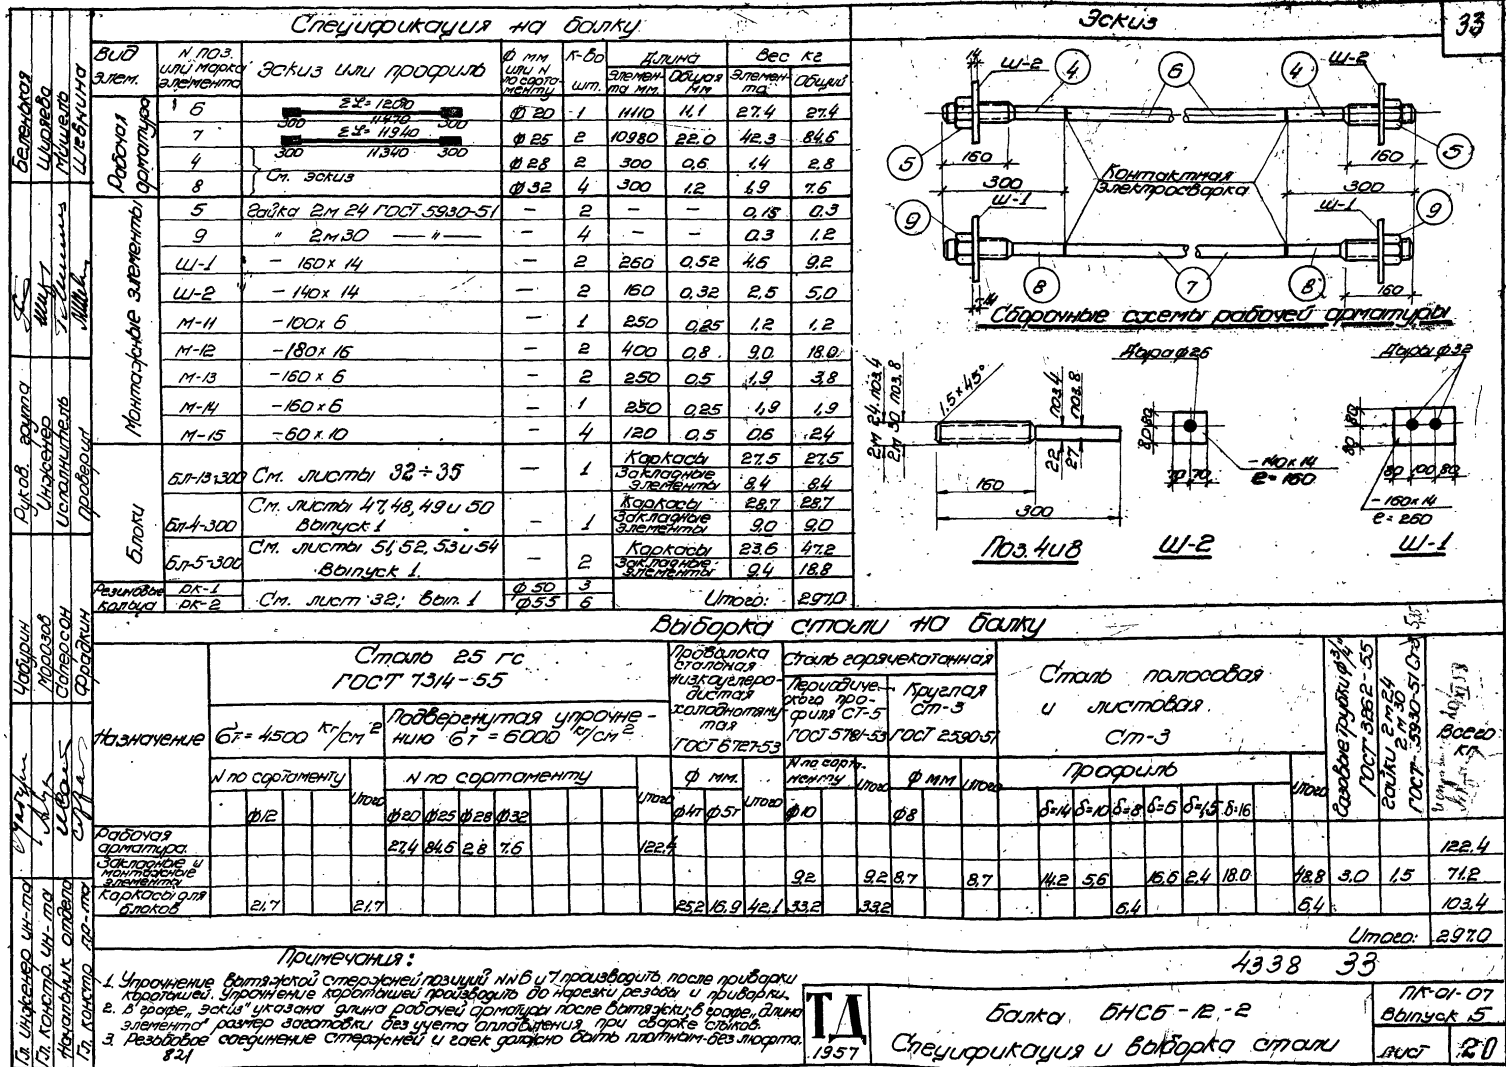 Спецификация на балку
Эскиз
33
Вид элем.
N поз. или марка элемента
Эскиз или профиль
Ф мм или N по сорта-менту
к-во шт.
Длина
Элемен-та мм.
Общая мм
Вес кг
Элемен-та
Общий
Рабочая арматура
6 300 11470 300 Ф20 1 11110 11.1 27.4 27.4
7 Σℓ=11940 300 11340 300 Ф25 2 10980 22.0 42.3 84.6
4 См. эскиз Ф28 2 300 0,6 1.4 2.8
8 Ф32 4 300 1.2 1.9 7.6
Монтажные элементы
5 Гайка 2м 24 ГОСТ 5930-51 — 2 — — 0,15 0.3
9 " 2м30 — " — — 4 — — 0.3 1.2
Ш-1 — 160 x 14 — 2 260 0,52 4.6 9.2
Ш-2 — 140 x 14 — 2 160 0,32 2,5 5,0
М-11 — 100 x 6 — 1 250 0,25 1,2 1,2
М-12 — 180 x 16 — 2 400 0,8 9.0 18.0
М-13 — 160 x 6 — 2 250 0.5 1.9 3,8
М-14 — 160 x 6 — 1 250 0,25 1,9 1,9
М-15 — 60 x 10 — 4 120 0,5 0,6 2.4
Блоки
БЛ-13-300 См. листы 32÷35 — 1 Каркасы 27.5 27.5
Закладные элементы 8.4 8.4
Бл-4-300 См. листы 47,48,49 и 50 Выпуск 1 — 1 Каркасы 28,7 28,7
Закладные элементы 9.0 9.0
Бл-5-300 См. листы 51,52,53 и 54 Выпуск 1. — 2 Каркасы 23.6 47.2
Закладные элементы 9.4 18.8
Резиновые кольца
РК-1 Ф50 3
РК-2 См. лист 32; Вып. 1 Ф55 6
Итого: 297.0
14 Ш-2 4 6 4 Ш-2
5 160 160 5
300 Контактная электросварка 300
9 Ш-1 Ш-1 9
8 7 8
14 160
Сборочные схемы рабочей арматуры
2м 24 поз.4
2м 30 поз.8
1.5 x 45°
поз.4
поз.8
22
27
160
300
Поз. 4 и 8
Дыра Ф26
80 80
70 70
— 140 x 14
ℓ=160
Ш-2
Дыры Ф32
80 80
80 100 80
— 160 x 14
ℓ=260
Ш-1
Выборка стали на балку
Назначение
Сталь 25 гс
ГОСТ 7314-55
σт = 4500 кг/см²
Подвергнутая упрочне-нию σт = 6000 кг/см²
N по сортаменту
Итого
N по сортаменту
Итого
Ф12
Ф20 Ф25 Ф28 Ф32
Проволока стальная низкоуглеро-дистая холоднотяну тая
ГОСТ 6727-53
Ф мм.
Итого
Ф4т Ф5т
Сталь горячекатанная
Периодиче-ского про-филя СТ-5
ГОСТ 5781-53
Круглая Ст-3
ГОСТ 2590-51
N по сорта-менту
Итого
Ф мм
Итого
Ф10
Ф8
Сталь полосовая и листовая. Ст-3
Профиль
Итого
δ=14 δ=10 δ=8 δ=6 δ=1,5 δ=16
Газовые трубки Ф3/4"
ГОСТ 3262-55
Гайки 2м24 2м30
ГОСТ-5930-51 Ст3
Всего кг
Рабочая арматура 27.4 84.6 2.8 7.6 122.4 122.4
Закладные и монтажные элементы 9.2 9.2 8.7 8.7 14.2 5,6 16.6 2.4 18.0 48.8 3.0 1.5 71.2
Каркасы для блоков 21.7 21.7 25.2 16.9 42.1 33.2 33.2 6.4 6.4 103.4
Итого: 297.0
Примечания:
1. Упрочнение вытяжкой стержней позиций NN 6 и 7 производить после приварки
коротышей. Упрочнение коротышей производить до нарезки резьбы и приварки.
2. В графе „эскиз" указана длина рабочей арматуры после вытяжки; в графе „длина
элемента" размер заготовки без учета оплавления при сварке стыков.
3. Резьбовое соединение стержней и гаек должно быть плотным-без люфта.
821
4338 33
ТД
1957
Балка БНСБ-12-2
Спецификация и выборка стали
ПК-01-07
Выпуск 5
лист 20
Беленькая
Ширяева
Мишель
Шевнина
Руков. группа
Инженер
Исполнитель
проверил
Чабурин
Морозов
Соперсон
Фрадкин
Гл. инженер ин-та
Гл. констр. ин-та
Начальник отдела
Гл. констр. пр-та